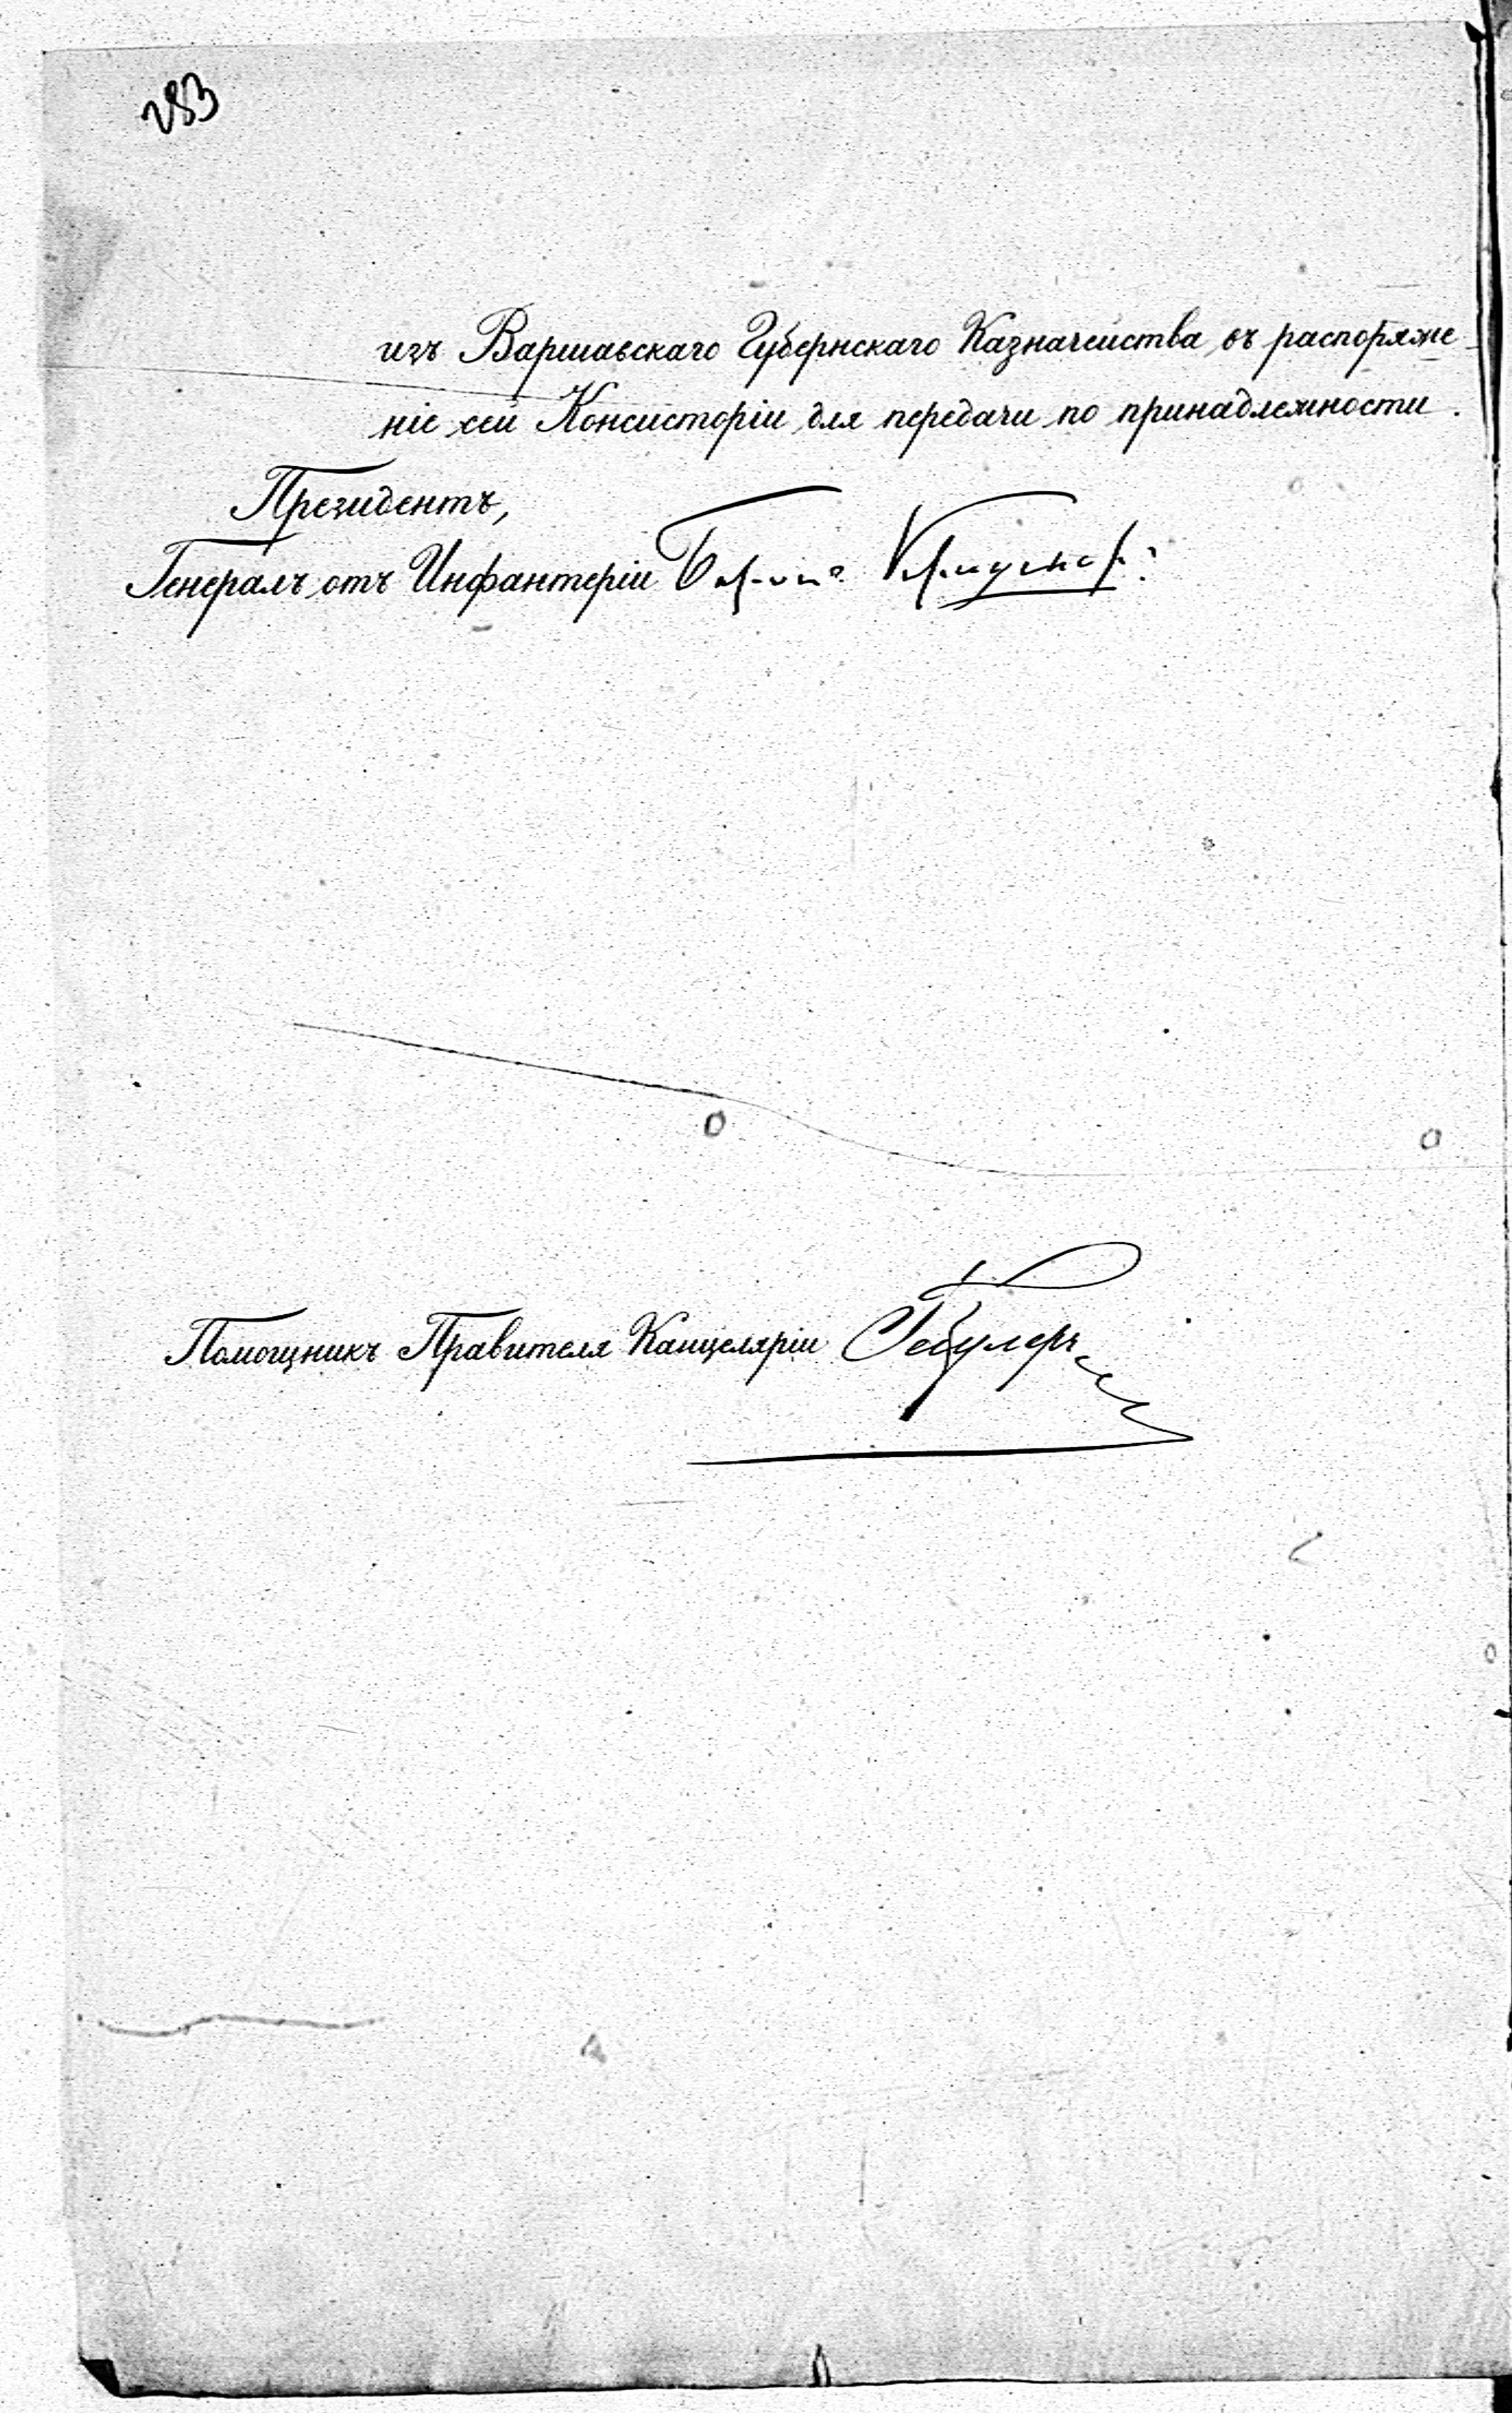 283
изъ Варшавскаго Губернскаго Казначейства въ распоряже-
ніе сей Консисторіи для передачи по принадлежности.
Президентъ,
Генералъ отъ Инфантеріи Баронъ
Помощникъ Правителя Канцеляріи